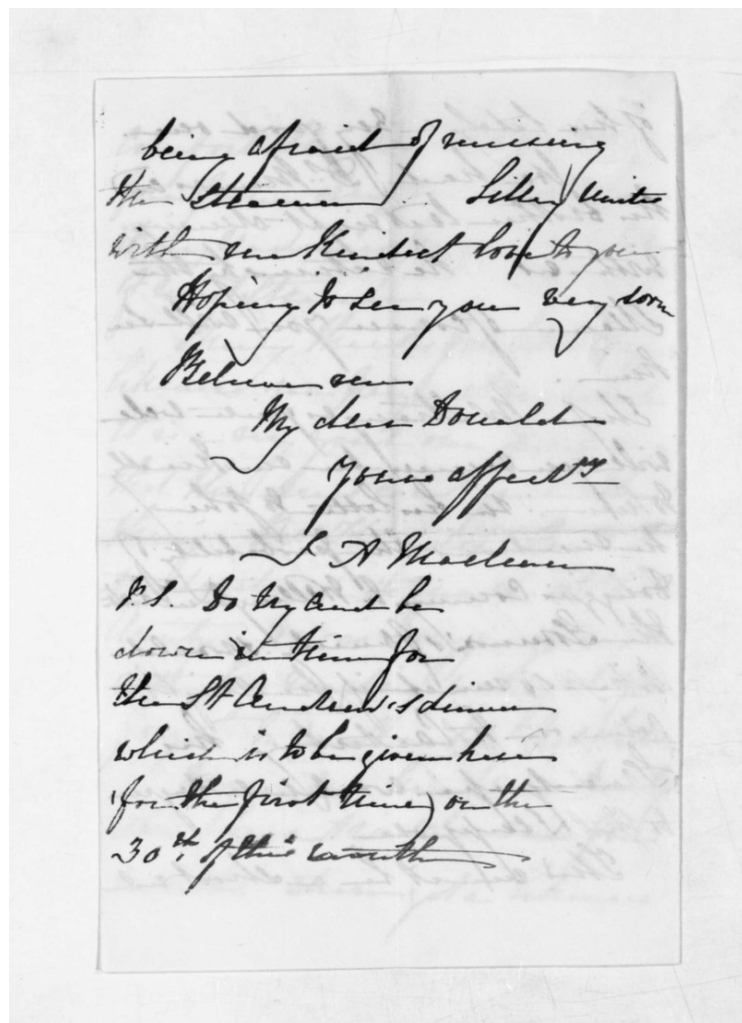 being afraid of missing
the Steamer. Lilley unites
with me Kindest love to you
Hoping to see you very soon
Believe me
My dear Donald
Yours affectly
A Maclean
P.S. Do try and be
down in time for
the St Andrew's dinner
which is to be given here
(for the first time) on the
30th of this month